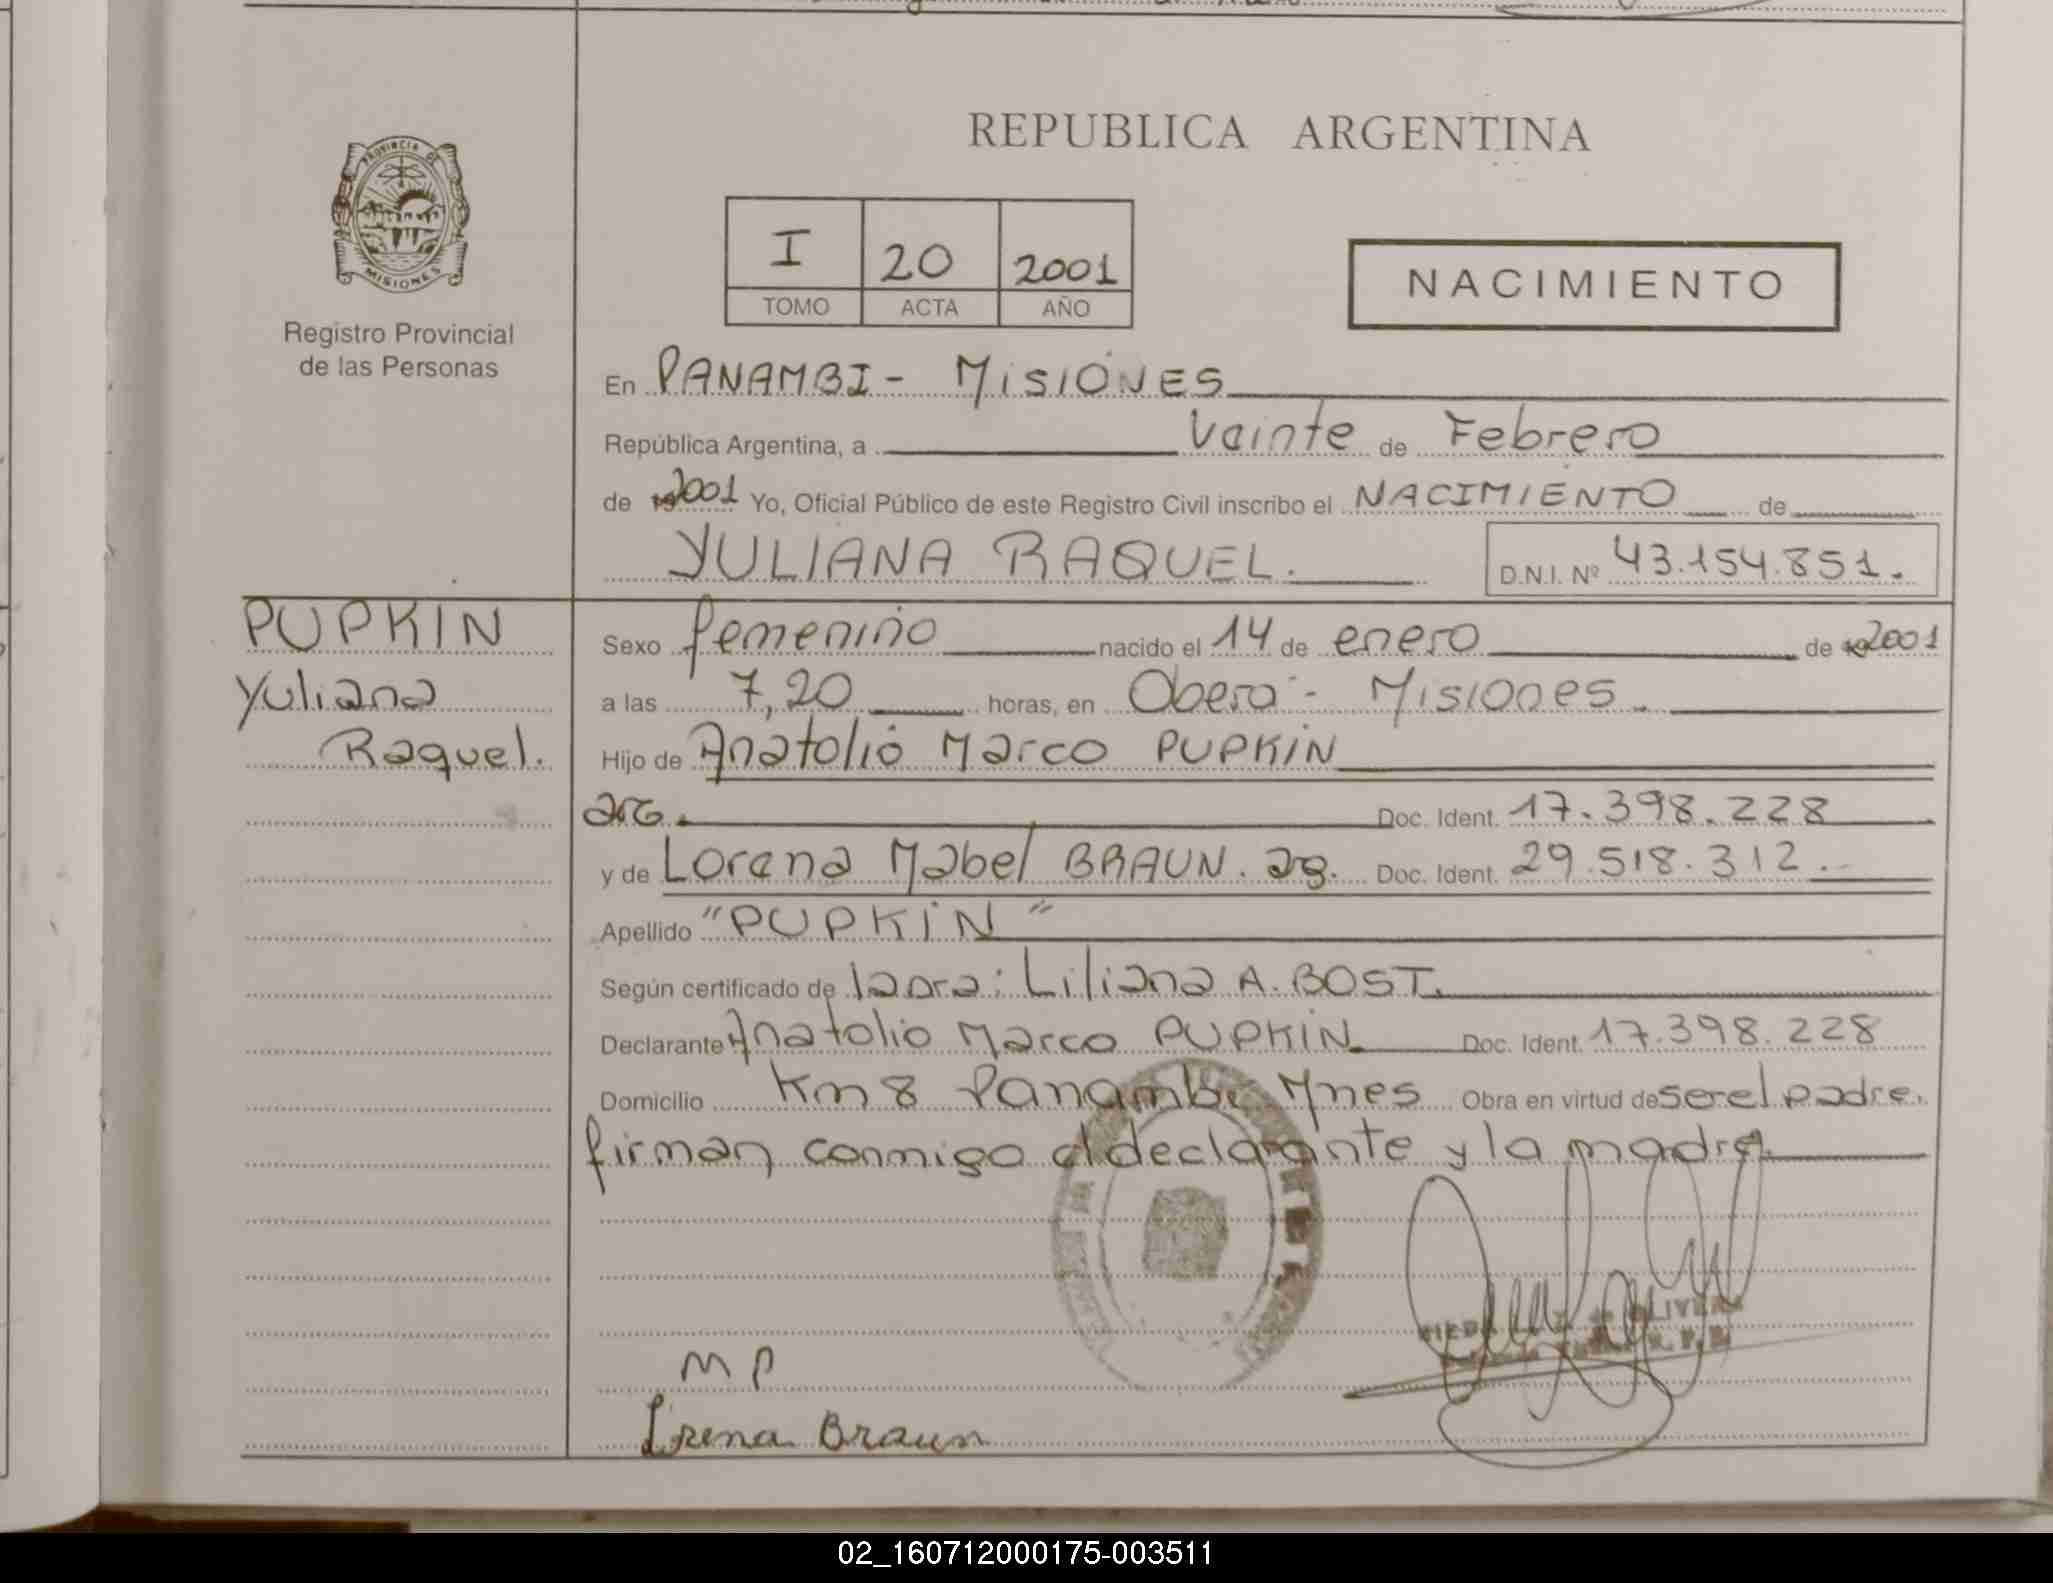 PROVINCIA DE
MISIONES
Registro Provincial
de las Personas
REPUBLICA ARGENTINA
I 20 2001
TOMO ACTA AÑO
NACIMIENTO
En PANAMBI - MISIONES
República Argentina, a Veinte de Febrero
de 192001 Yo, Oficial Público de este Registro Civil inscribo el NACIMIENTO de
YULIANA RAQUEL. D.N.I. Nº 43.154.851.
PUPKIN
Yuliana
Raquel.
Sexo femenino nacido el 14 de enero de 192001
a las 7,20 horas, en Obera - Misiones.
Hijo de Anatolio Marco PUPKIN
arg. Doc. Ident. 17.398.228
y de Lorena Mabel BRAUN. arg. Doc. Ident. 29.518.312.
Apellido "PUPKIN"
Según certificado de la Dra: Liliana A. BOST.
Declarante Anatolio Marco PUPKIN. Doc. Ident. 17.398.228
Domicilio Km 8 Panambi Mnes Obra en virtud de ser el padre.
firman conmigo el declarante y la madre.
M P
Lrena Braun
02_160712000175-003511